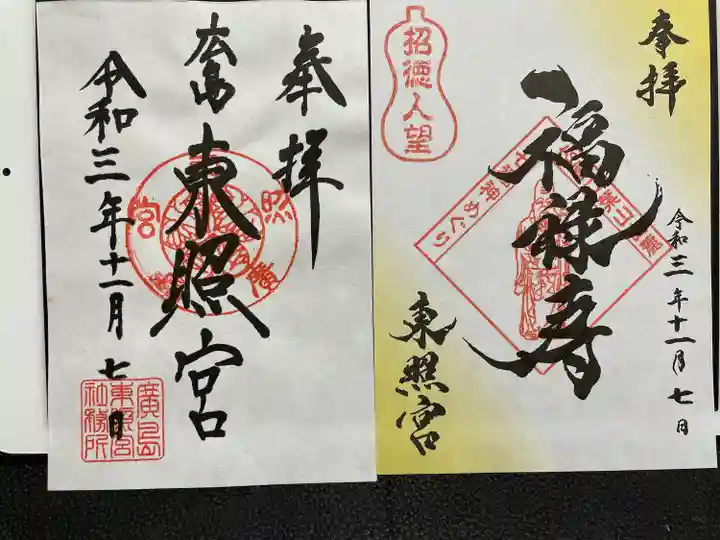 奉拝
東照宮
令和三年十一月七日
廣島
東照宮
社務所
奉拝
招徳人望
福禄寿
七福神めぐり
令和三年十一月七日
東照宮